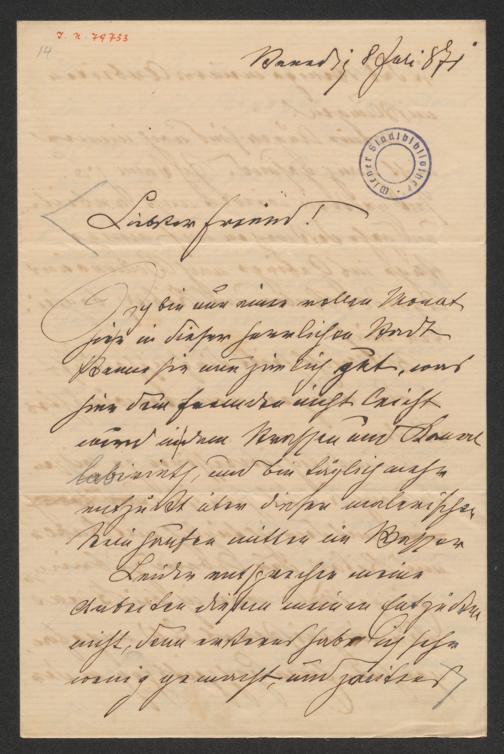 I. N. 79733
14
Venedig 8 Juli 871
Wiener Stadtbibliothek
Liebster Freund!
Ich bin nun einen vollen Monat
hier in dieser herrlichen Stadt
kenne sie nun ziemlich gut, was
hier dem Fremden nicht leicht
wird in dem Strassen und Kanal
labirinth, und bin täglich mehr
entzückt über diesen malerischen
Steinhaufen mitten im Wasser
Leider entsprechen meine
Arbeiten diesem meinen Entzücken
nicht, denn erstens habe ich sehr
wenig gemacht, und zweitens